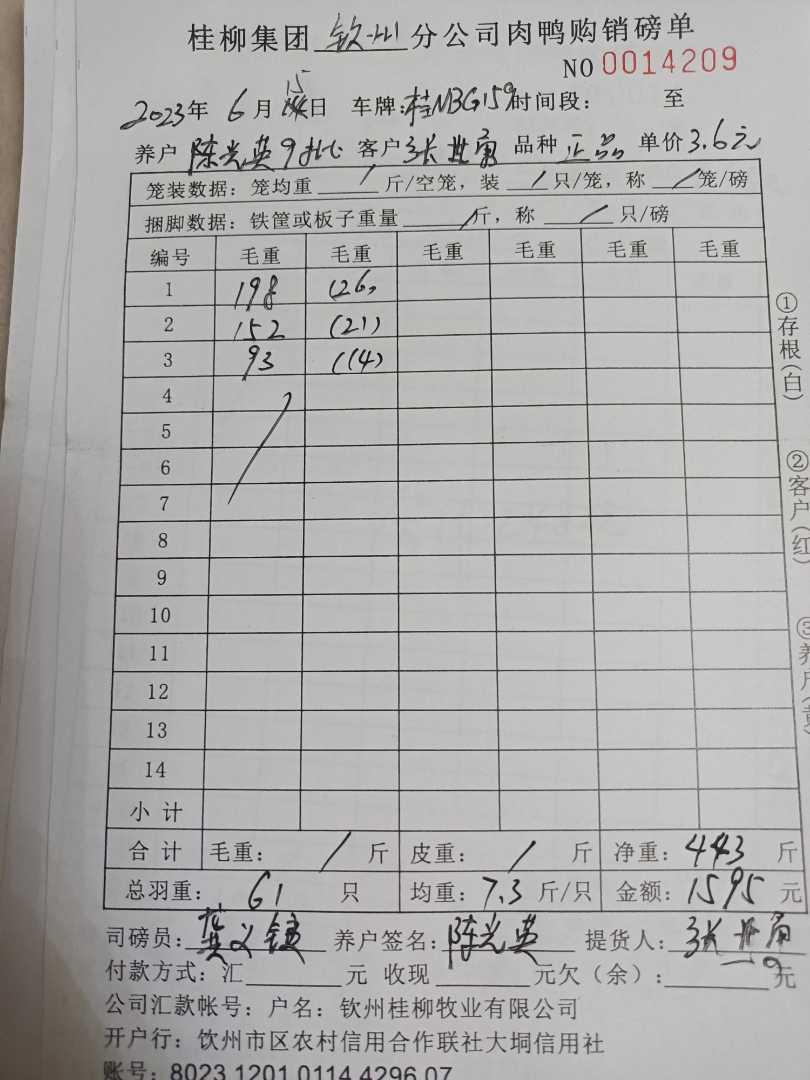 桂柳集团 钦州 分公司肉鸭购销磅单
NO 0014209
2023年 6月 15日 车牌:桂NBG159 时间段: 至
养户 陈光英9批 客户 张世南 品种 正品 单价3.6元
笼装数据: 笼均重 / 斤/空笼, 装 / 只/笼, 称 / 笼/磅
捆脚数据: 铁筐或板子重量 / 斤, 称 / 只/磅
编号 毛重 毛重 毛重 毛重 毛重 毛重
1 198 (26)
2 152 (21)
3 93 (14)
4
5
6
7
8
9
10
11
12
13
14
小 计
合 计 毛重: / 斤 皮重: / 斤 净重: 443 斤
总羽重: 61 只 均重: 7.3 斤/只 金额: 1595 元
司磅员: 养户签名: 陈光英 提货人: 张世南
付款方式: 汇 元 收现 元欠(余): 元
公司汇款帐号: 户名: 钦州桂柳牧业有限公司
开户行: 饮州市区农村信用合作联社大垌信用社
账号: 8023 1201 0114 4296 07
①存根(白)
②客户(红)
③养户(黄)